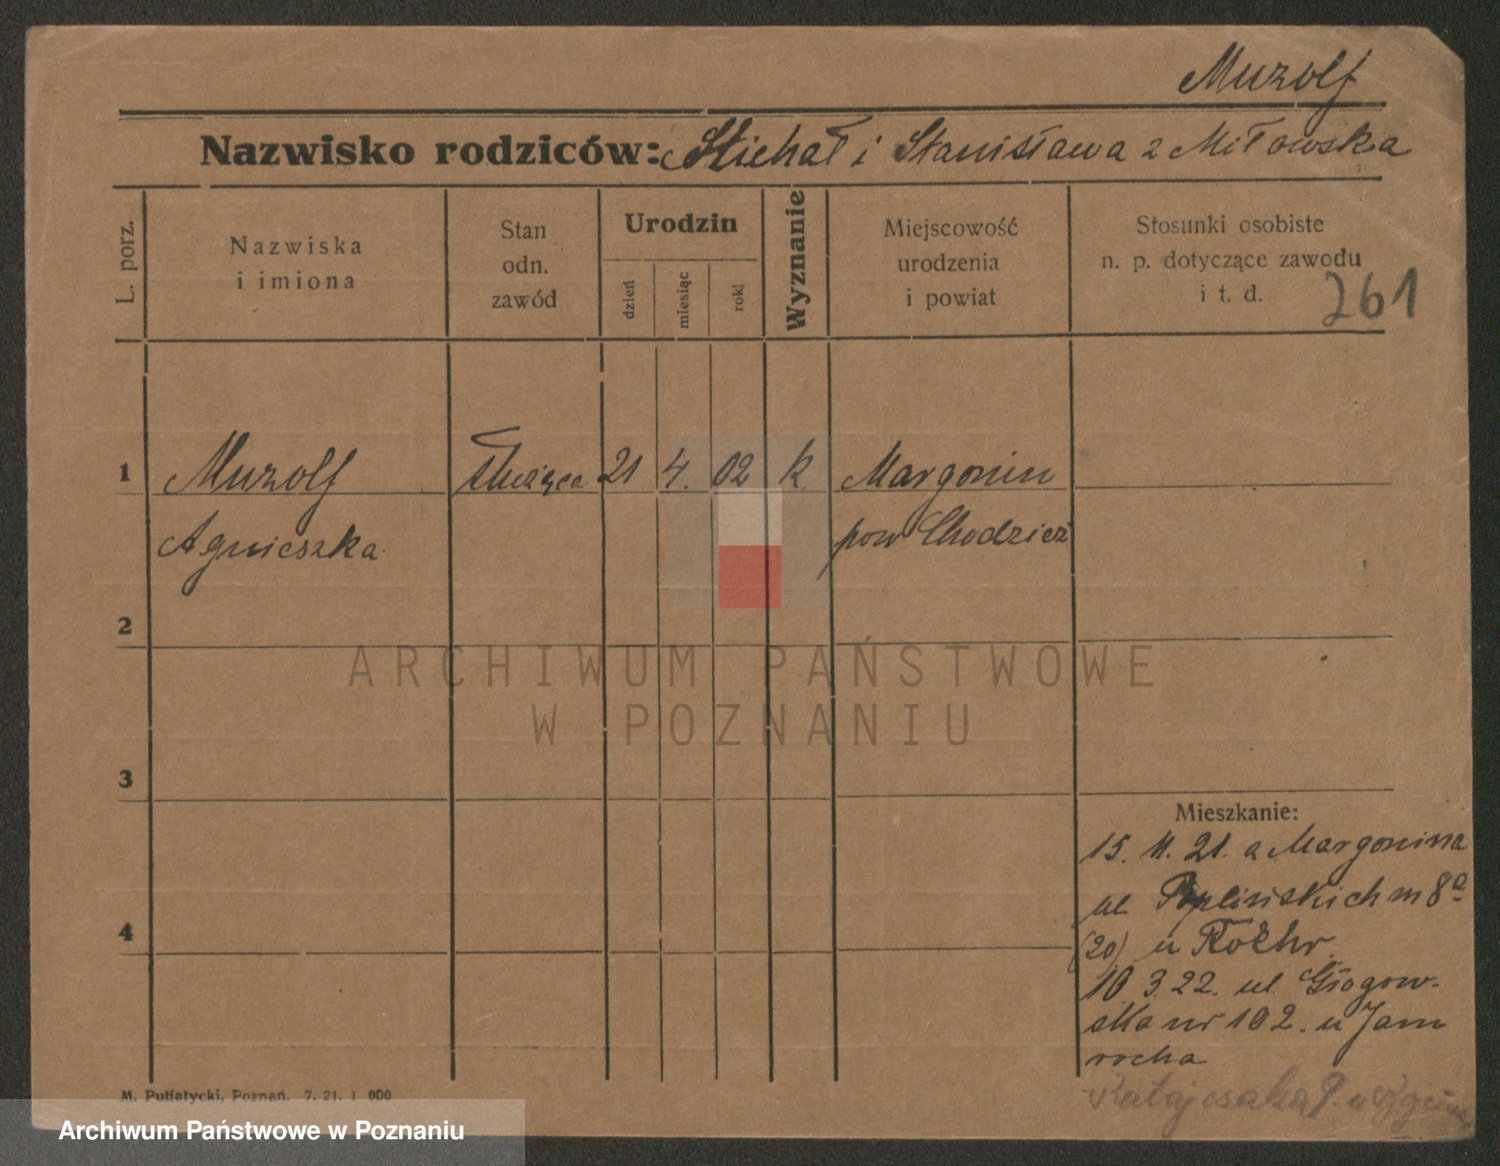 Muzolf
Nazwisko rodziców: Michał i Stanisława z Miłowska
L. porz.
Nazwiska
i imiona
Stan
odn.
zawód
Urodzin
dzień
miesiąc
rok
Wyznanie
Miejscowość
urodzenia
i powiat
Stosunki osobiste
n. p. dotyczące zawodu
i t. d.
261
1 Muzolf służąca 21 4. 02 k. Margonin
Agnieszka pow Chodzież
2
3
4
Mieszkanie:
15. 11. 21. a Margonina
ul. Poplińskich m 8a
(20) u
10 3.22. ul. Głogow-
ska nr 102. u Jam
rocha
Ratajczaka 9. u
M. Putiatycki, Poznań. 7. 21. 1 000
ARCHIWUM PAŃSTWOWE
W POZNANIU
Archiwum Państwowe w Poznaniu